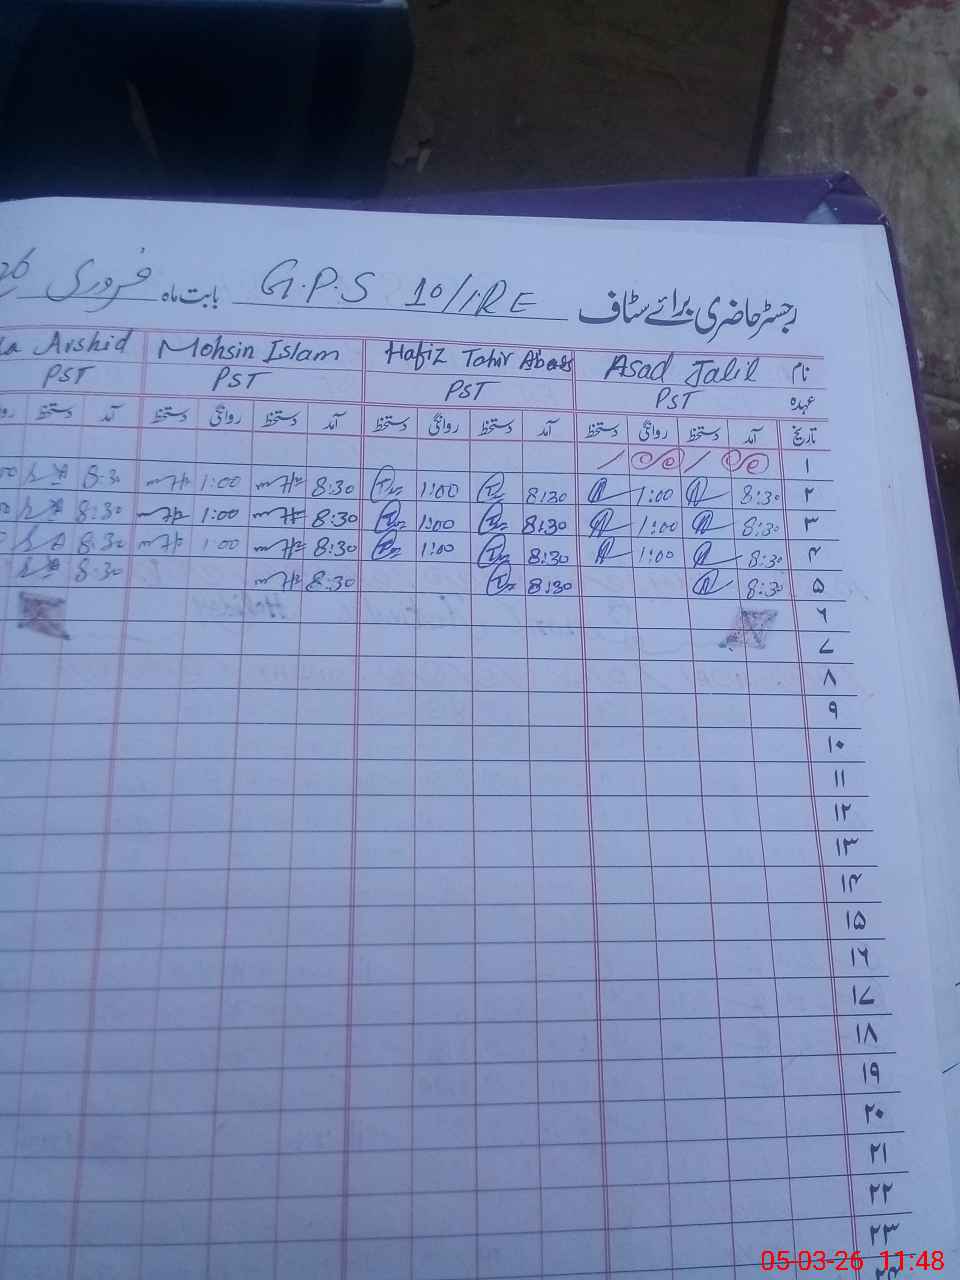 رجسٹر حاضری برائے سٹاف G.P.S 10/1RE بابت ماہ فروری
نام Asad Jalil Hafiz Tahir Abbas Mohsin Islam Arshid
عہدہ PST PST PST PST
تاریخ آمد دستخط روانگی دستخط آمد دستخط روانگی دستخط آمد دستخط روانگی دستخط آمد دستخط
۱
۲ 8:30 1:00 8:30 1:00 8:30 1:00 8:30
۳ 8:30 1:00 8:30 1:00 8:30 1:00 8:30
۴ 8:30 1:00 8:30 1:00 8:30 1:00 8:30
۵ 8:30 8:30 8:30 8:30
۶
۷
۸
۹
۱۰
۱۱
۱۲
۱۳
۱۴
۱۵
۱۶
۱۷
۱۸
۱۹
۲۰
۲۱
۲۲
۲۳
۲۴
05-03-26 11:48